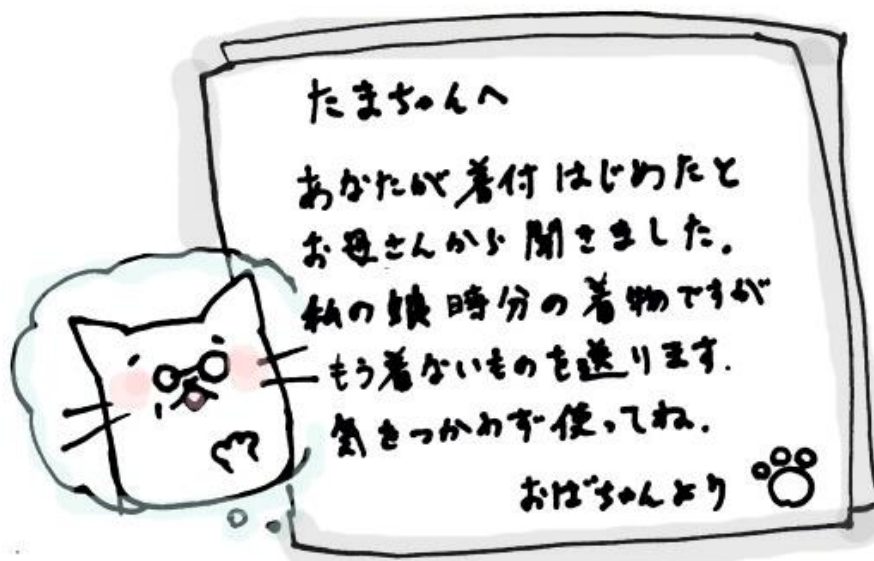 たまちゃんへ
あなたが着付はじめたと
お母さんから聞きました。
私の娘時分の着物ですが
もう着ないものを送ります.
気をつかわず使ってね.
おばちゃんより